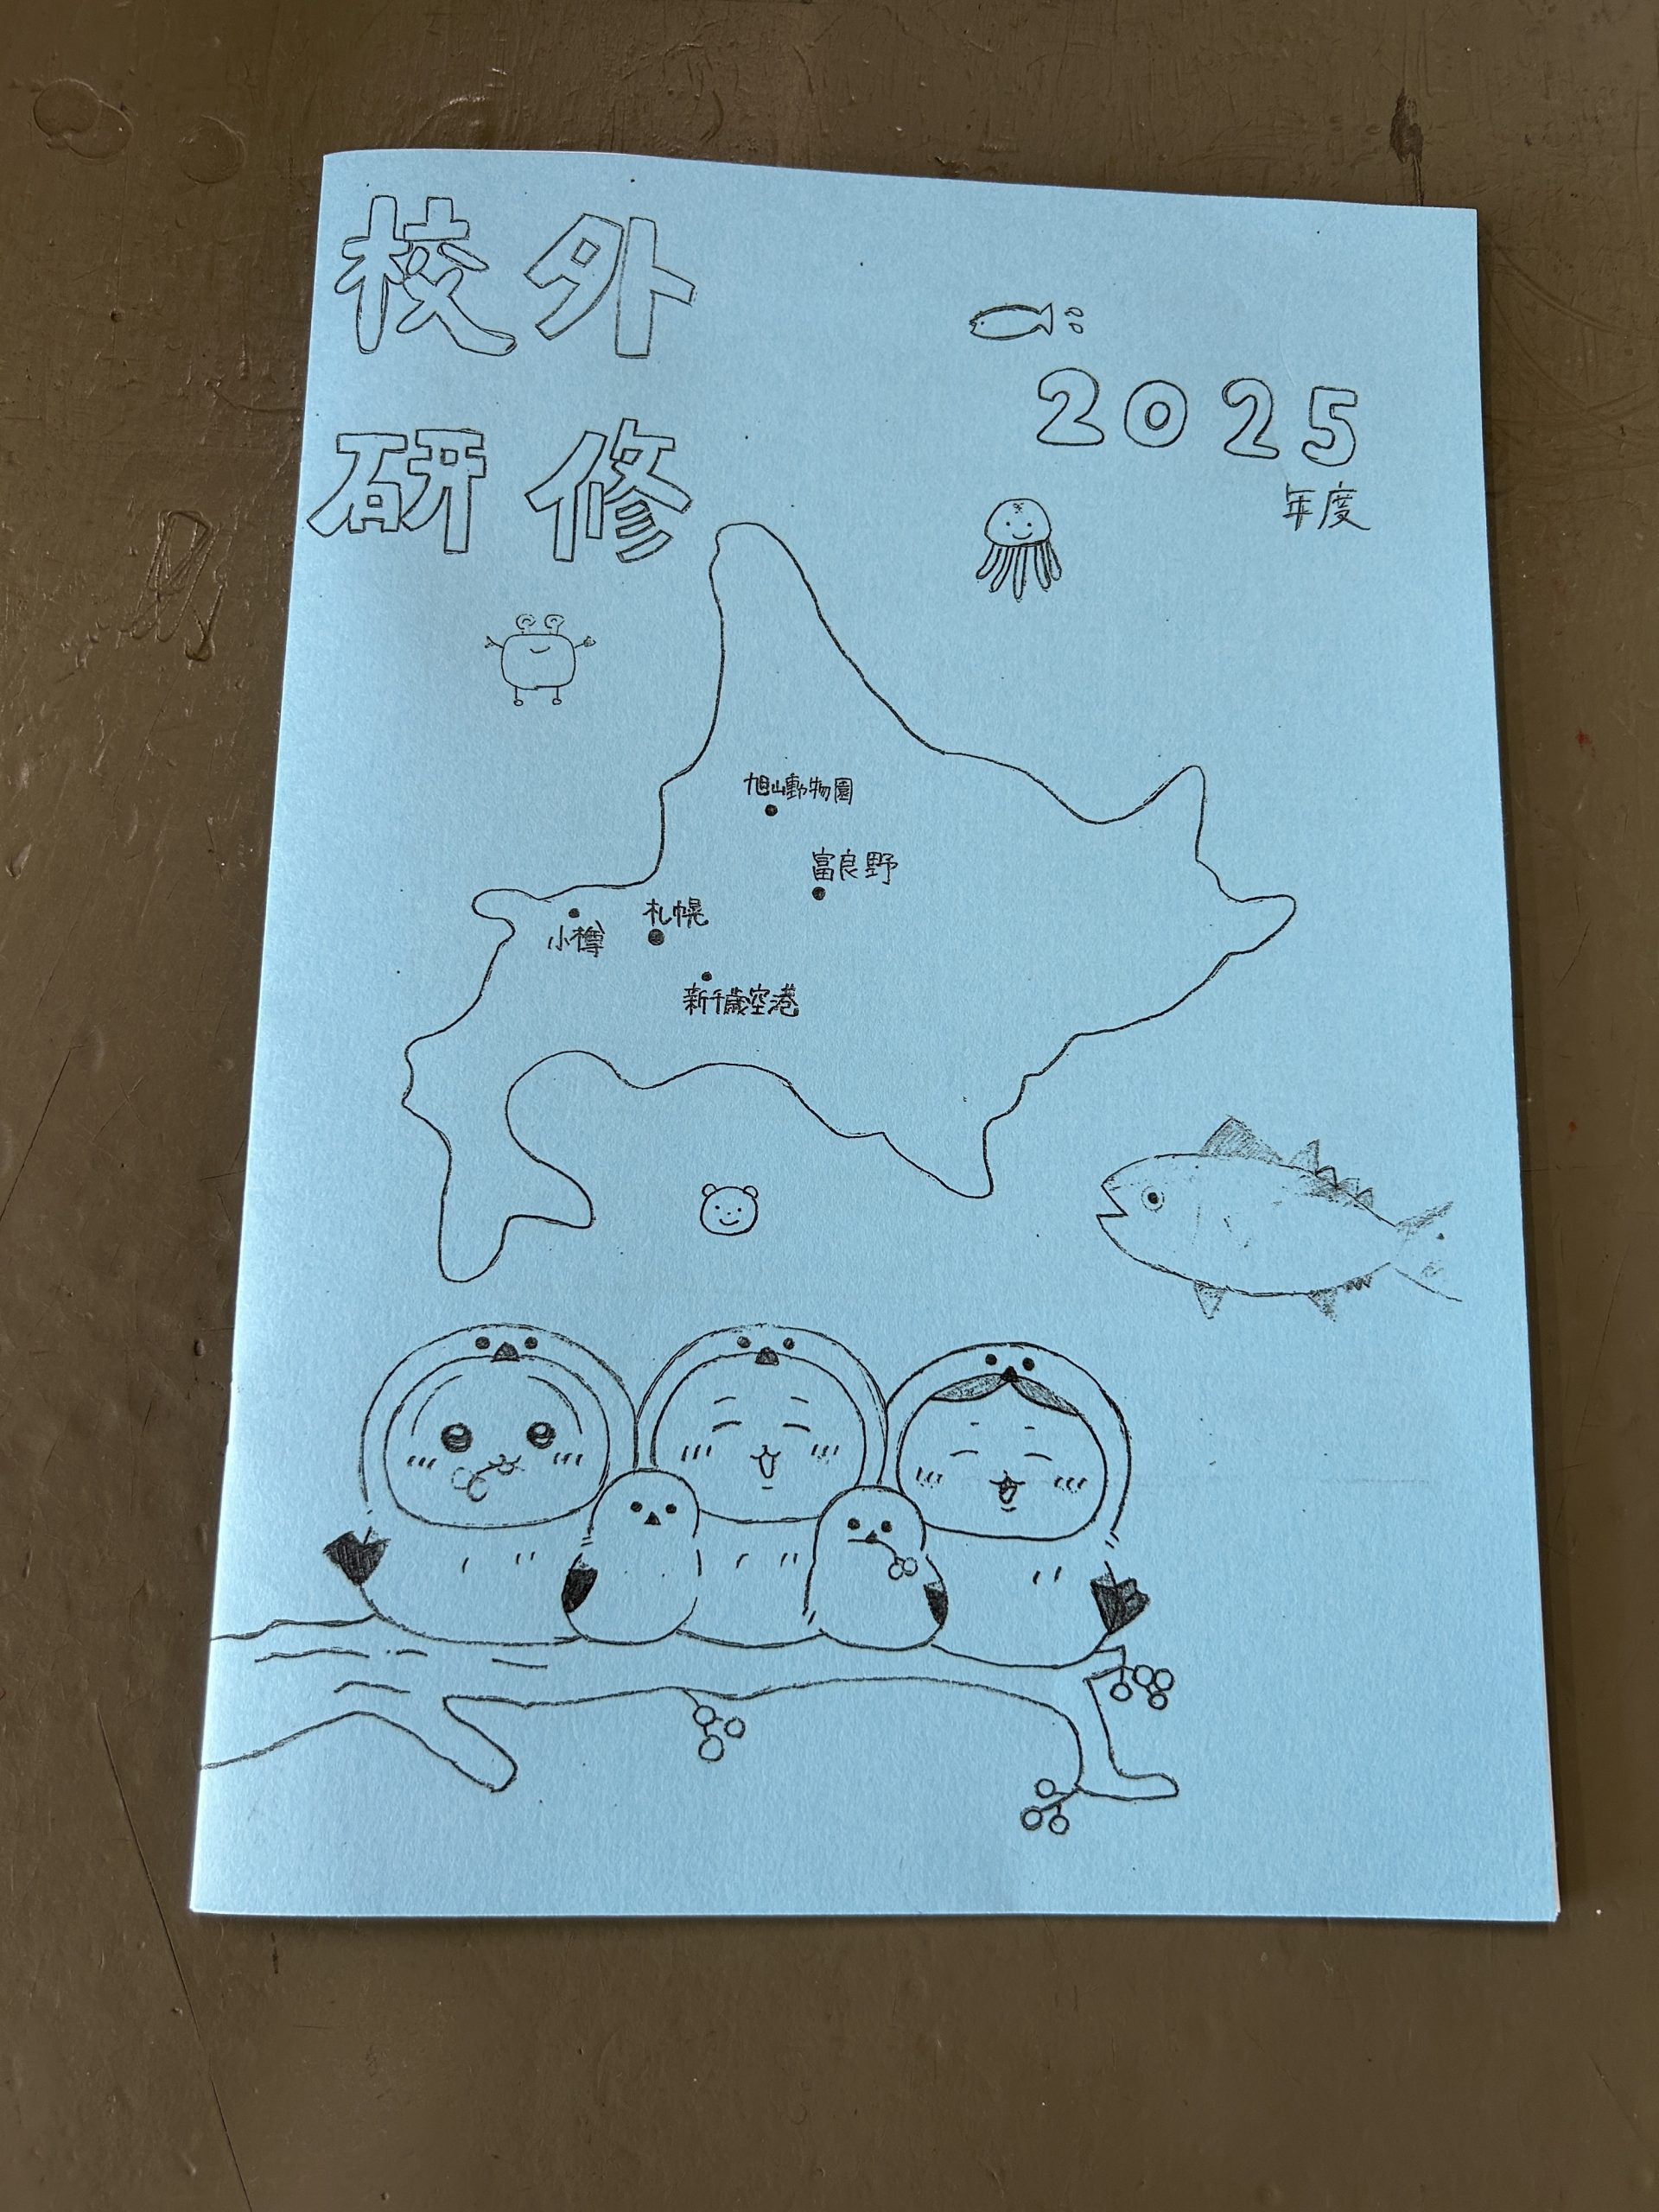 校外
研修
2025
年度
旭山動物園
富良野
札幌
小樽
新千歳空港